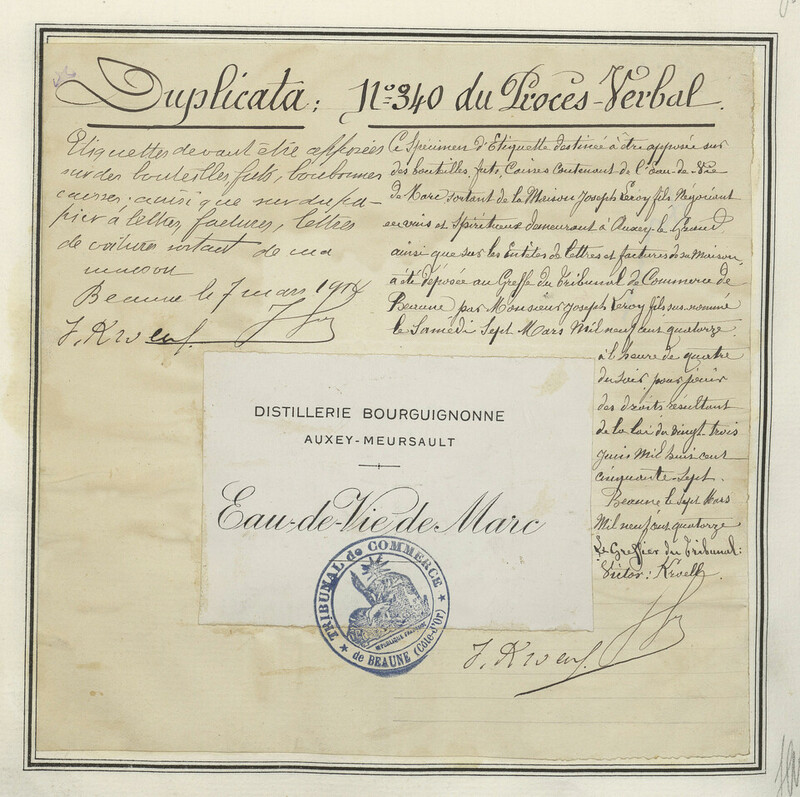 Duplicata : N° 340 du Procès-Verbal.
Etiquettes devant être apposées
sur des bouteilles, fûts, bonbonnes
caisses, ainsi que sur du pa-
pier à lettres, factures, lettres
de voitures sortant de ma
maison
Beaune le 7 mars 1914
Ce Spécimen d'Etiquette destinée à être apposée sur
des bouteilles, fûts, Caisses contenant de l'Eau de Vie
de Marc sortant de la Maison Joseph Leroy fils Négociant
en vins et Spiritueux demeurant à Auxey-le-Grand,
ainsi que sur les Entêtes de lettres et factures de sa Maison,
a été déposée au Greffe du Tribunal de Commerce de
Beaune par Monsieur Joseph Leroy fils sus-nommé
le Samedi Sept Mars Mil neuf cent quatorze
à l'heure de quatre
du soir, pour jouir
des droits résultant
de la loi du vingt trois
juin Mil huit cent
cinquante-sept.
Beaune le Sept Mars
Mil neuf cent quatorze
Le Greffier du Tribunal :
DISTILLERIE BOURGUIGNONNE
AUXEY-MEURSAULT
Eau-de-Vie de Marc
TRIBUNAL de COMMERCE
RÉPUBLIQUE FRANÇAISE
de BEAUNE (Côte-d'Or)